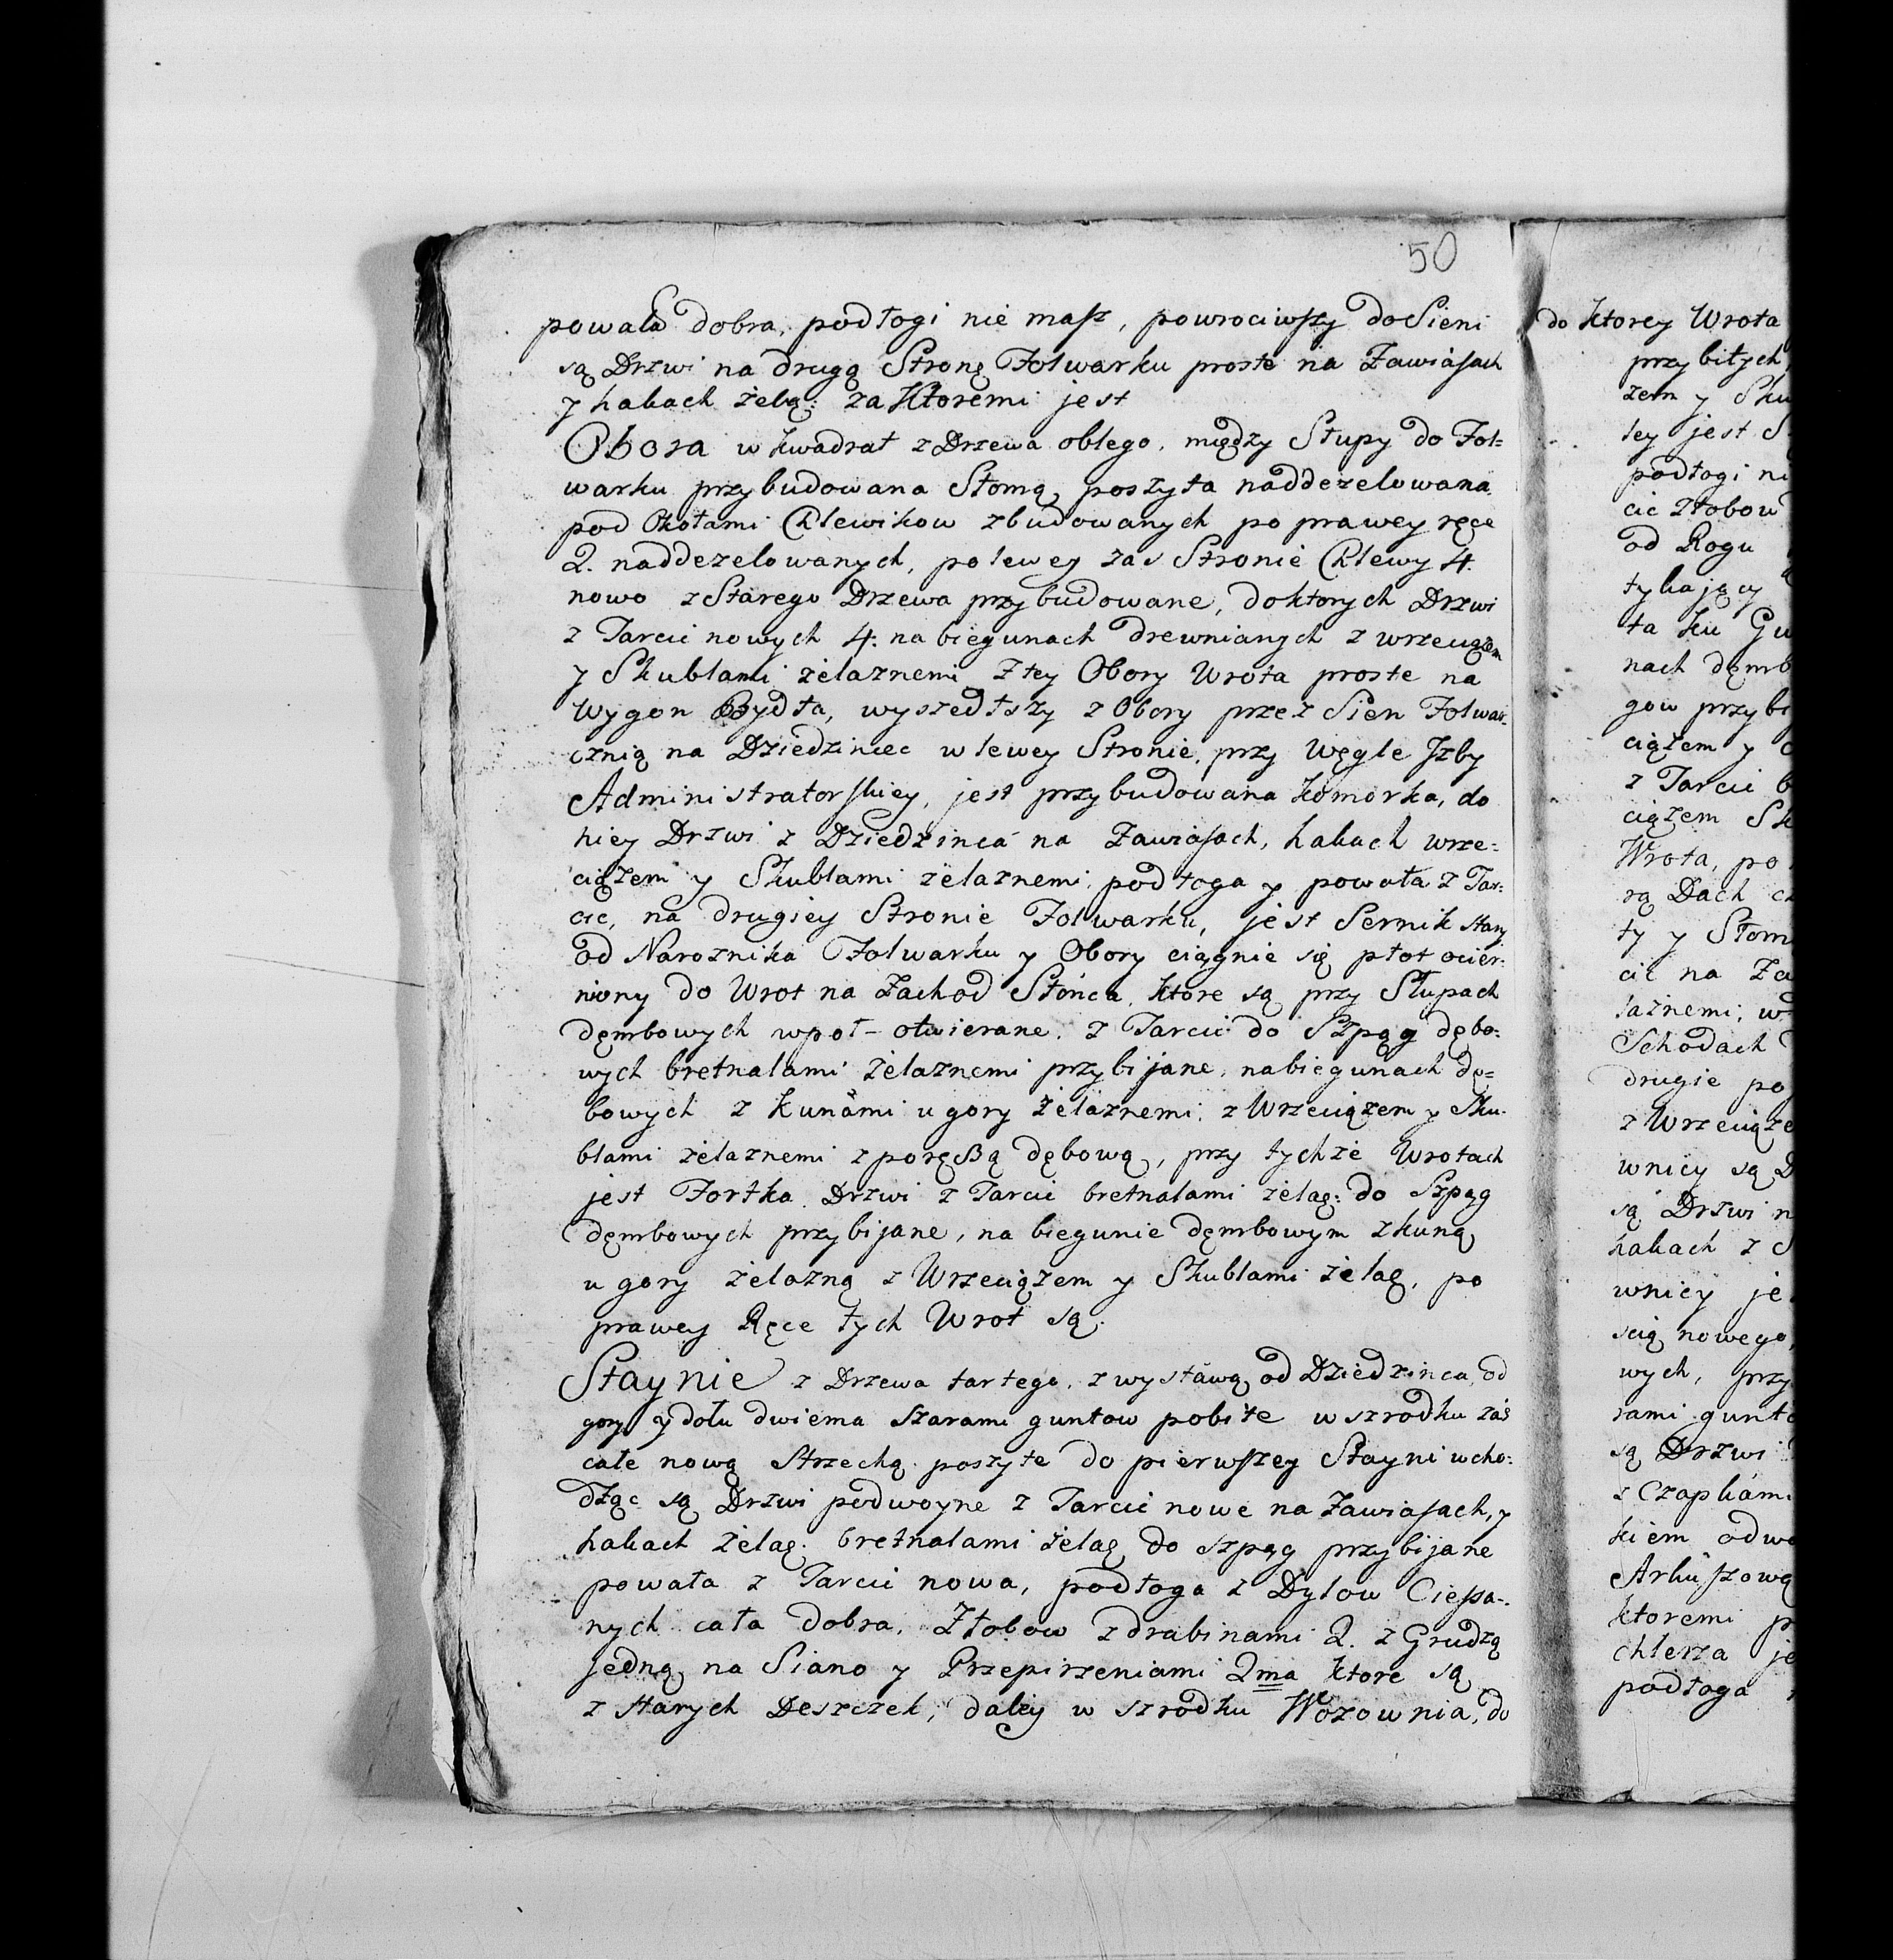 50
powała dobra, podłogi nie masz, powrociwszy do Sieni
są Drzwi na drugą Stronę Folwarku proste na Zawiasach
y hakach żelą: za Ktoremi jest
Obora w kwadrat z Drzewa obłego, między Słupy do Fol=
warku przybudowana Słomą poszyta naddezelowana
pod Okołami Chlewikow zbudowanych po prawey ręce
2. naddezelowanych, po lewey zas Stronie Chlewy 4.
nowo z Starego Drzewa przybudowane, do ktorych Drzwi
z Tarcic nowych 4. na biegunach drewnianych z wrzeciążem
y Skublami żelaznemi z tey Obory Wrota proste na
Wygon Bydła, wyszedłszy z Obory przez Sien Folwar=
czną na Dziedziniec w lewey Stronie, przy Węgle Jzby
Administratorskiey, jest przybudowana Komorka, do
niey Drzwi z Dziedzinca na Zawiasach, hakach wrze=
ciążem y Skublami żelaznemi, podłoga y powała z Tar=
cic, na drugiey Stronie Folwarku, jest Sernik stary
od Naroznika Folwarku y Obory ciągnie się płot ocier=
niony do Wrot na Zachod Słońca, ktore są przy Słupach
dęmbowych wpoł-otwierane, z Tarcic do Szpąg dębo=
wych bretnalami żelaznemi przybijane, na biegunach dę=
bowych z Kunami u gory żelaznemi, z Wrzeciązem y Sku=
blami żelaznemi z poręßą dębową, przy tychże Wrotach
jest Fortka Drzwi z Tarcic bretnalami żelaz: do Szpąg
dęmbowych przybijane, na biegunie dęmbowym z kuną
u gory żelazną z Wrzeciążem y Skublami żelaz, po
prawey Ręce tych Wrot są.
Staynie z Drzewa tartego, z wystawą od Dziedzinca, od
gory y dołu dwiema szarami guntow pobite w szrodku zaś
całe nową Strzechą poszyte do pierwszey Stayni wcho=
dząc są Drzwi podwoyne z Tarcic nowe na Zawiasach, y
hakach żelaz. bretnalami żelaz do szpąg przybijane
powała z Tarcic nowa, podłoga z Dylow Ciesza=
nych cała dobra. Złobow z drabinami 2. z Grudzą
jedną na Siano y Przepirzeniami 2ma ktore są
z starych Deszczek, daley w szrodku Wozownia, do
do Ktorey Wrota
przybitych
zem y Sku
ley jest S
podłogi ni
cic złobow
od Rogu
tykający
ta ku Gu
nach dęmb
gow przybi
ciążem y
z Tarcic b
ciążem Sk
Wrota, po
rą Dach
ty y Słom
cic na Za
laznemi, w
Schodach
drugie po
z Wrzeciąże
wnicy są D
są Drzwi n
hakach z S
wnicy je
scią nowego
wych, przy
rami gunto
są Drzwi
z Czapkami
kiem odwo
Arkuszową
ktoremi p
chlerza je
podłoga